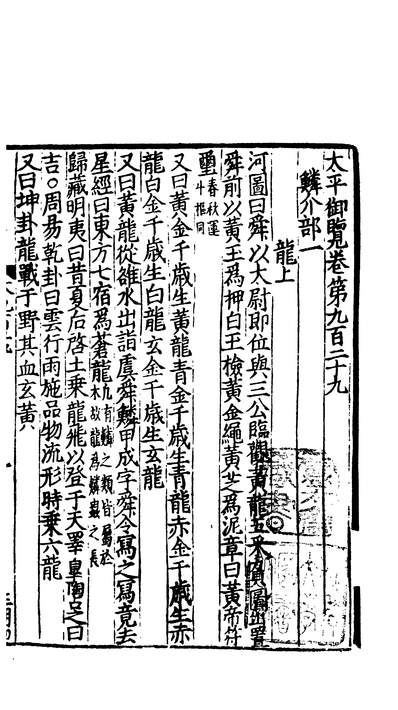 太平御覽卷第九百二十九
鱗介部一
龍上
河圖曰舜以太尉即位與三公臨觀黃龍五采負圖出置
舜前以黃玉爲押白玉檢黃金繩黃芝爲泥章曰黃帝符
璽春秋運斗樞同
又曰黃金千歲生黃龍青金千歲生青龍赤金千歲生赤
龍白金千歲生白龍玄金千歲生玄龍
又曰黃龍從雒水出詣虞舜鱗甲成字舜令寫之寫竟去
星經曰東方七宿爲蒼龍凡有鱗之類皆屬於木故龍爲鱗蟲之長
歸藏明夷曰昔夏后啓土乗龍飛以登于天睪臯陶占之曰
吉○周易乾卦曰雲行雨施品物流形時乗六龍
又曰坤卦龍戰于野其血玄黃